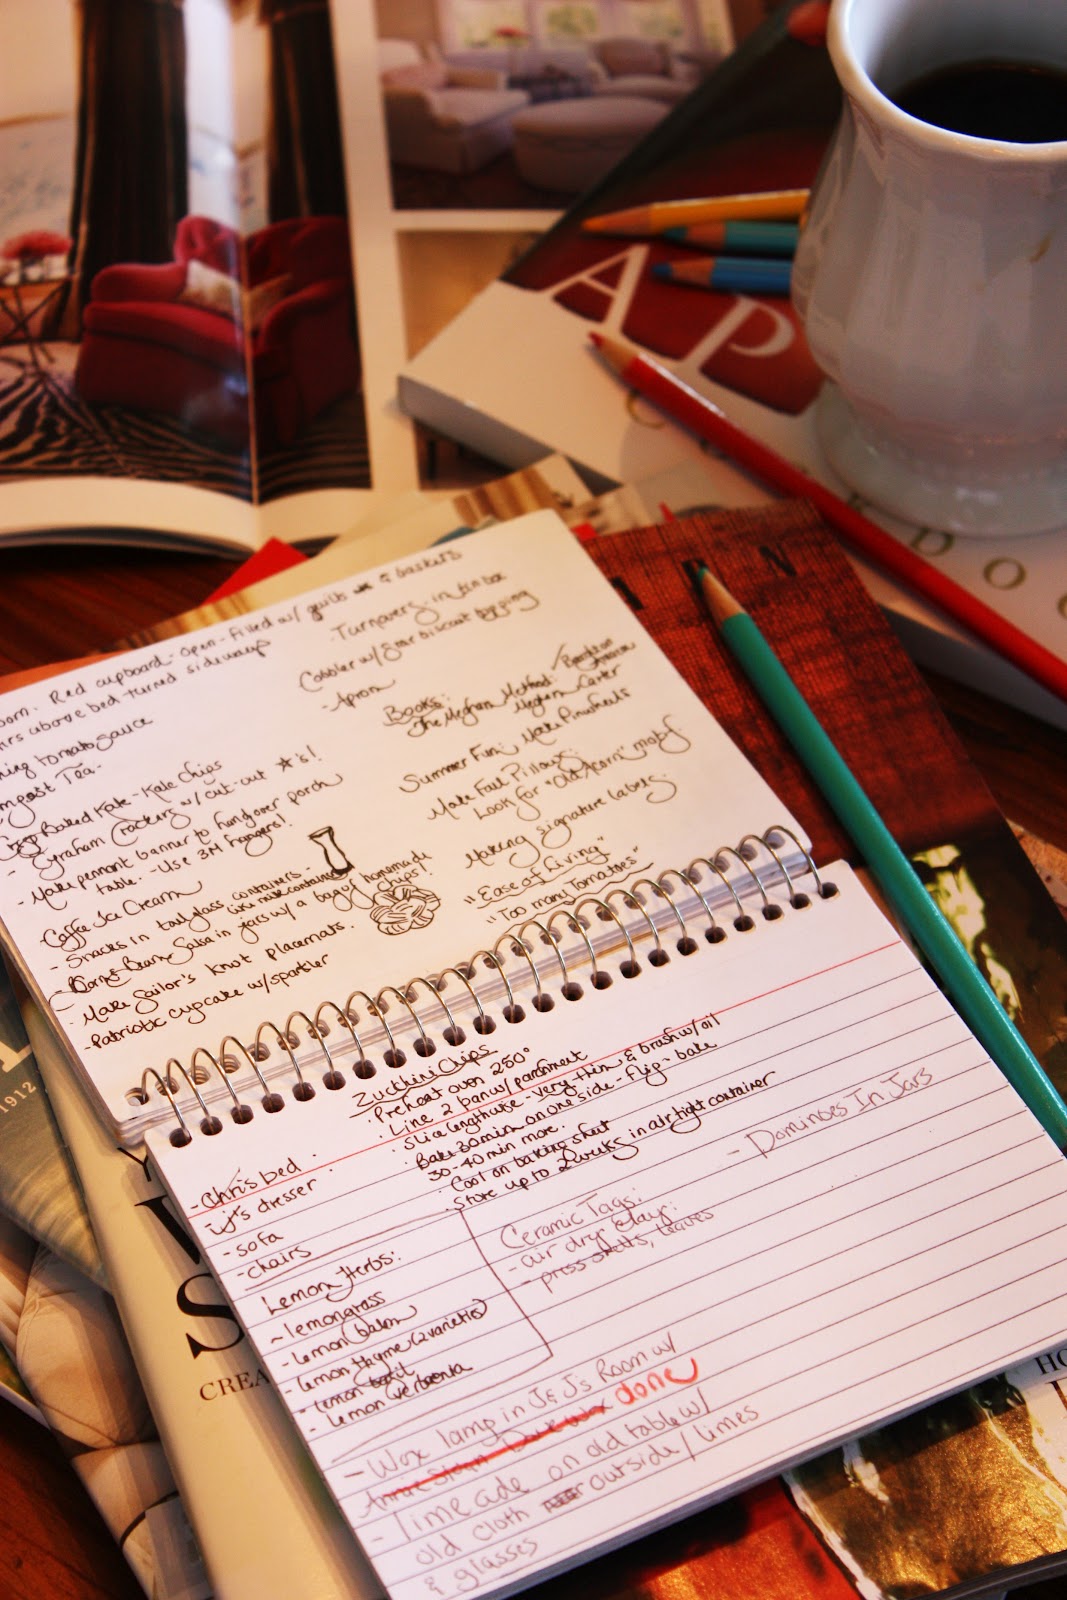 AP
C
D O
N
oom. Red cupboard - open - filled w/ quilts & baskets
above bed turned sideways
Turnovers in tin box
Cobbler w/ Star biscuit topping
- Apron
Books:
The Meghan Method:
Meghan Carter
Summer Fun: Make Pinwheels
Make Fall Pillows:
Look for "Old Acorn" motif
Making signature labels.
"Ease of Living."
"Too many Tomatoes"
ning tomato sauce
mpost Tea -
Baked Kale - Kale Chips
- Graham Crackers w/ cut-out ★'s!
- Make pennant banner to hang over porch
table. - Use 3M hangers!
- Coffee Ice Cream
- Snacks in tall glass containers.
like milk containers
Bean Salsa in jars w/ a bag of homemade
chips!
- Make Sailor's Knot placemats.
- Patriotic cupcake w/ sparkler
Zucchini Chips
· Preheat oven 250°
· Line 2 pan w/ parchment
· Slice lengthwise - very thin & brush w/ oil
· Bake 30 min on one side - flip - bake
30-40 min more.
· Cool on baking sheet
· Store up to 2 weeks in airtight container
- Chris bed
dresser
- sofa
- chairs
Lemon Herbs:
- lemongrass
- lemon balm
- lemon thyme (2 varieties)
- lemon basil
- lemon verbena
- Dominoes In Jars
Ceramic Tags:
- air dry clay:
- press shells, leaves
- Wax lamp in J & J's Room w/
Annie Sloan Dark Wax done
- limeade on old table w/
old cloth outside / limes
& glasses
1912
S
CREA
HO